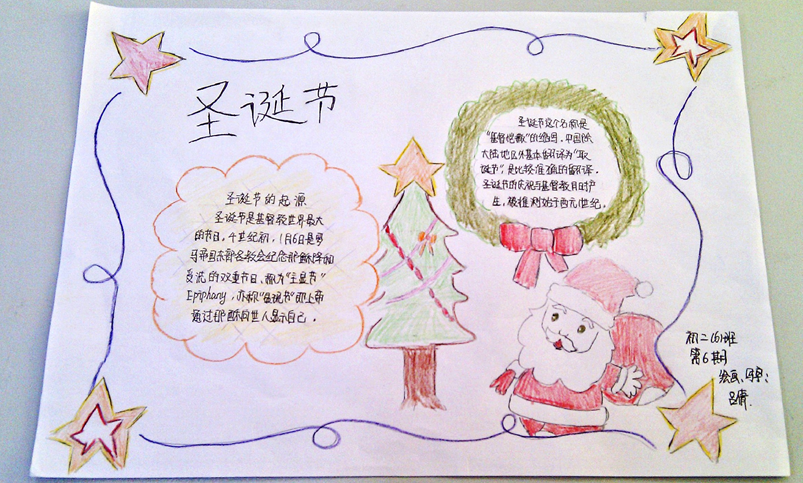 圣诞节
圣诞节的起源
圣诞节是基督教世界最大
的节日。4世纪初,1月6日是罗
马帝国东部各教会纪念耶稣降和
受洗的双重节日、称为"主显节"
Epiphany,亦称"显现节"即上帝
通过耶稣向世人显示自己。
圣诞节这个名称是
"基督弥撒"的缩写。中国除
大陆地区外基本翻译为"耶
诞节",是比较准确的翻译。
圣诞节的庆祝与基督教同时
,被推测始于西元1世纪。
初二(6)班
第6期
绘画、